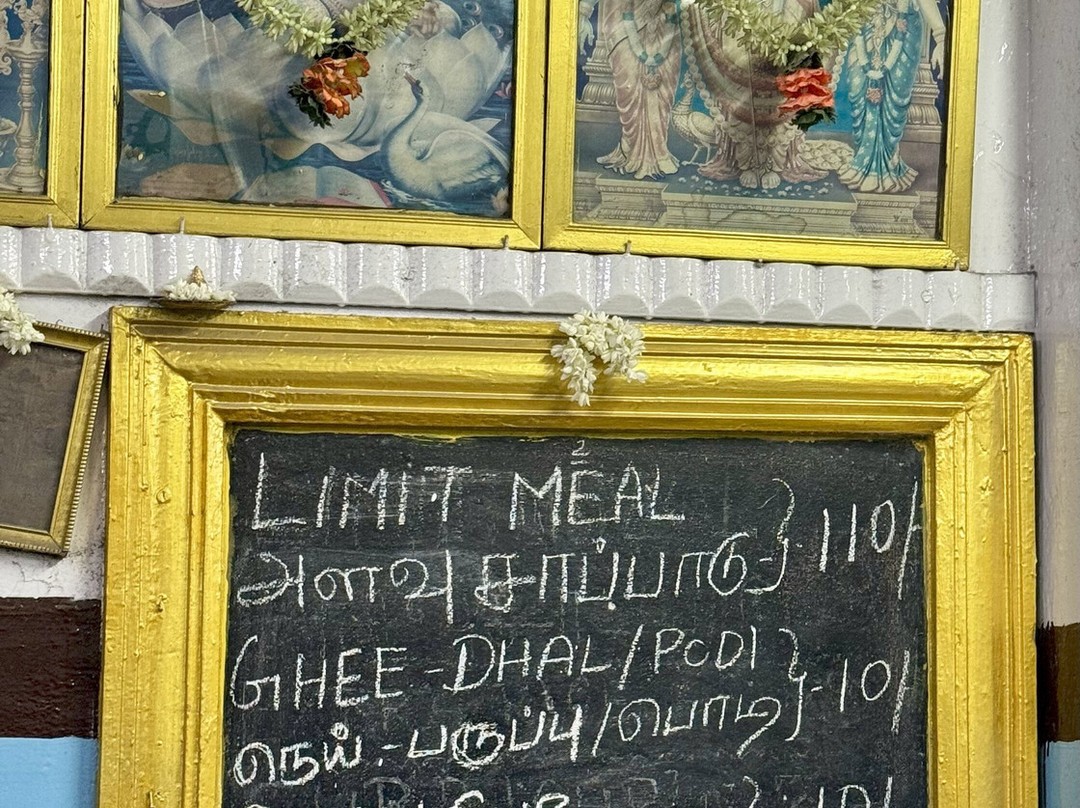 LIMIT MEAL
அளவு சாப்பாடு } - 110/-
GHEE - DHAL / PODI
நெய் - பருப்பு / பொடி } - 10/-